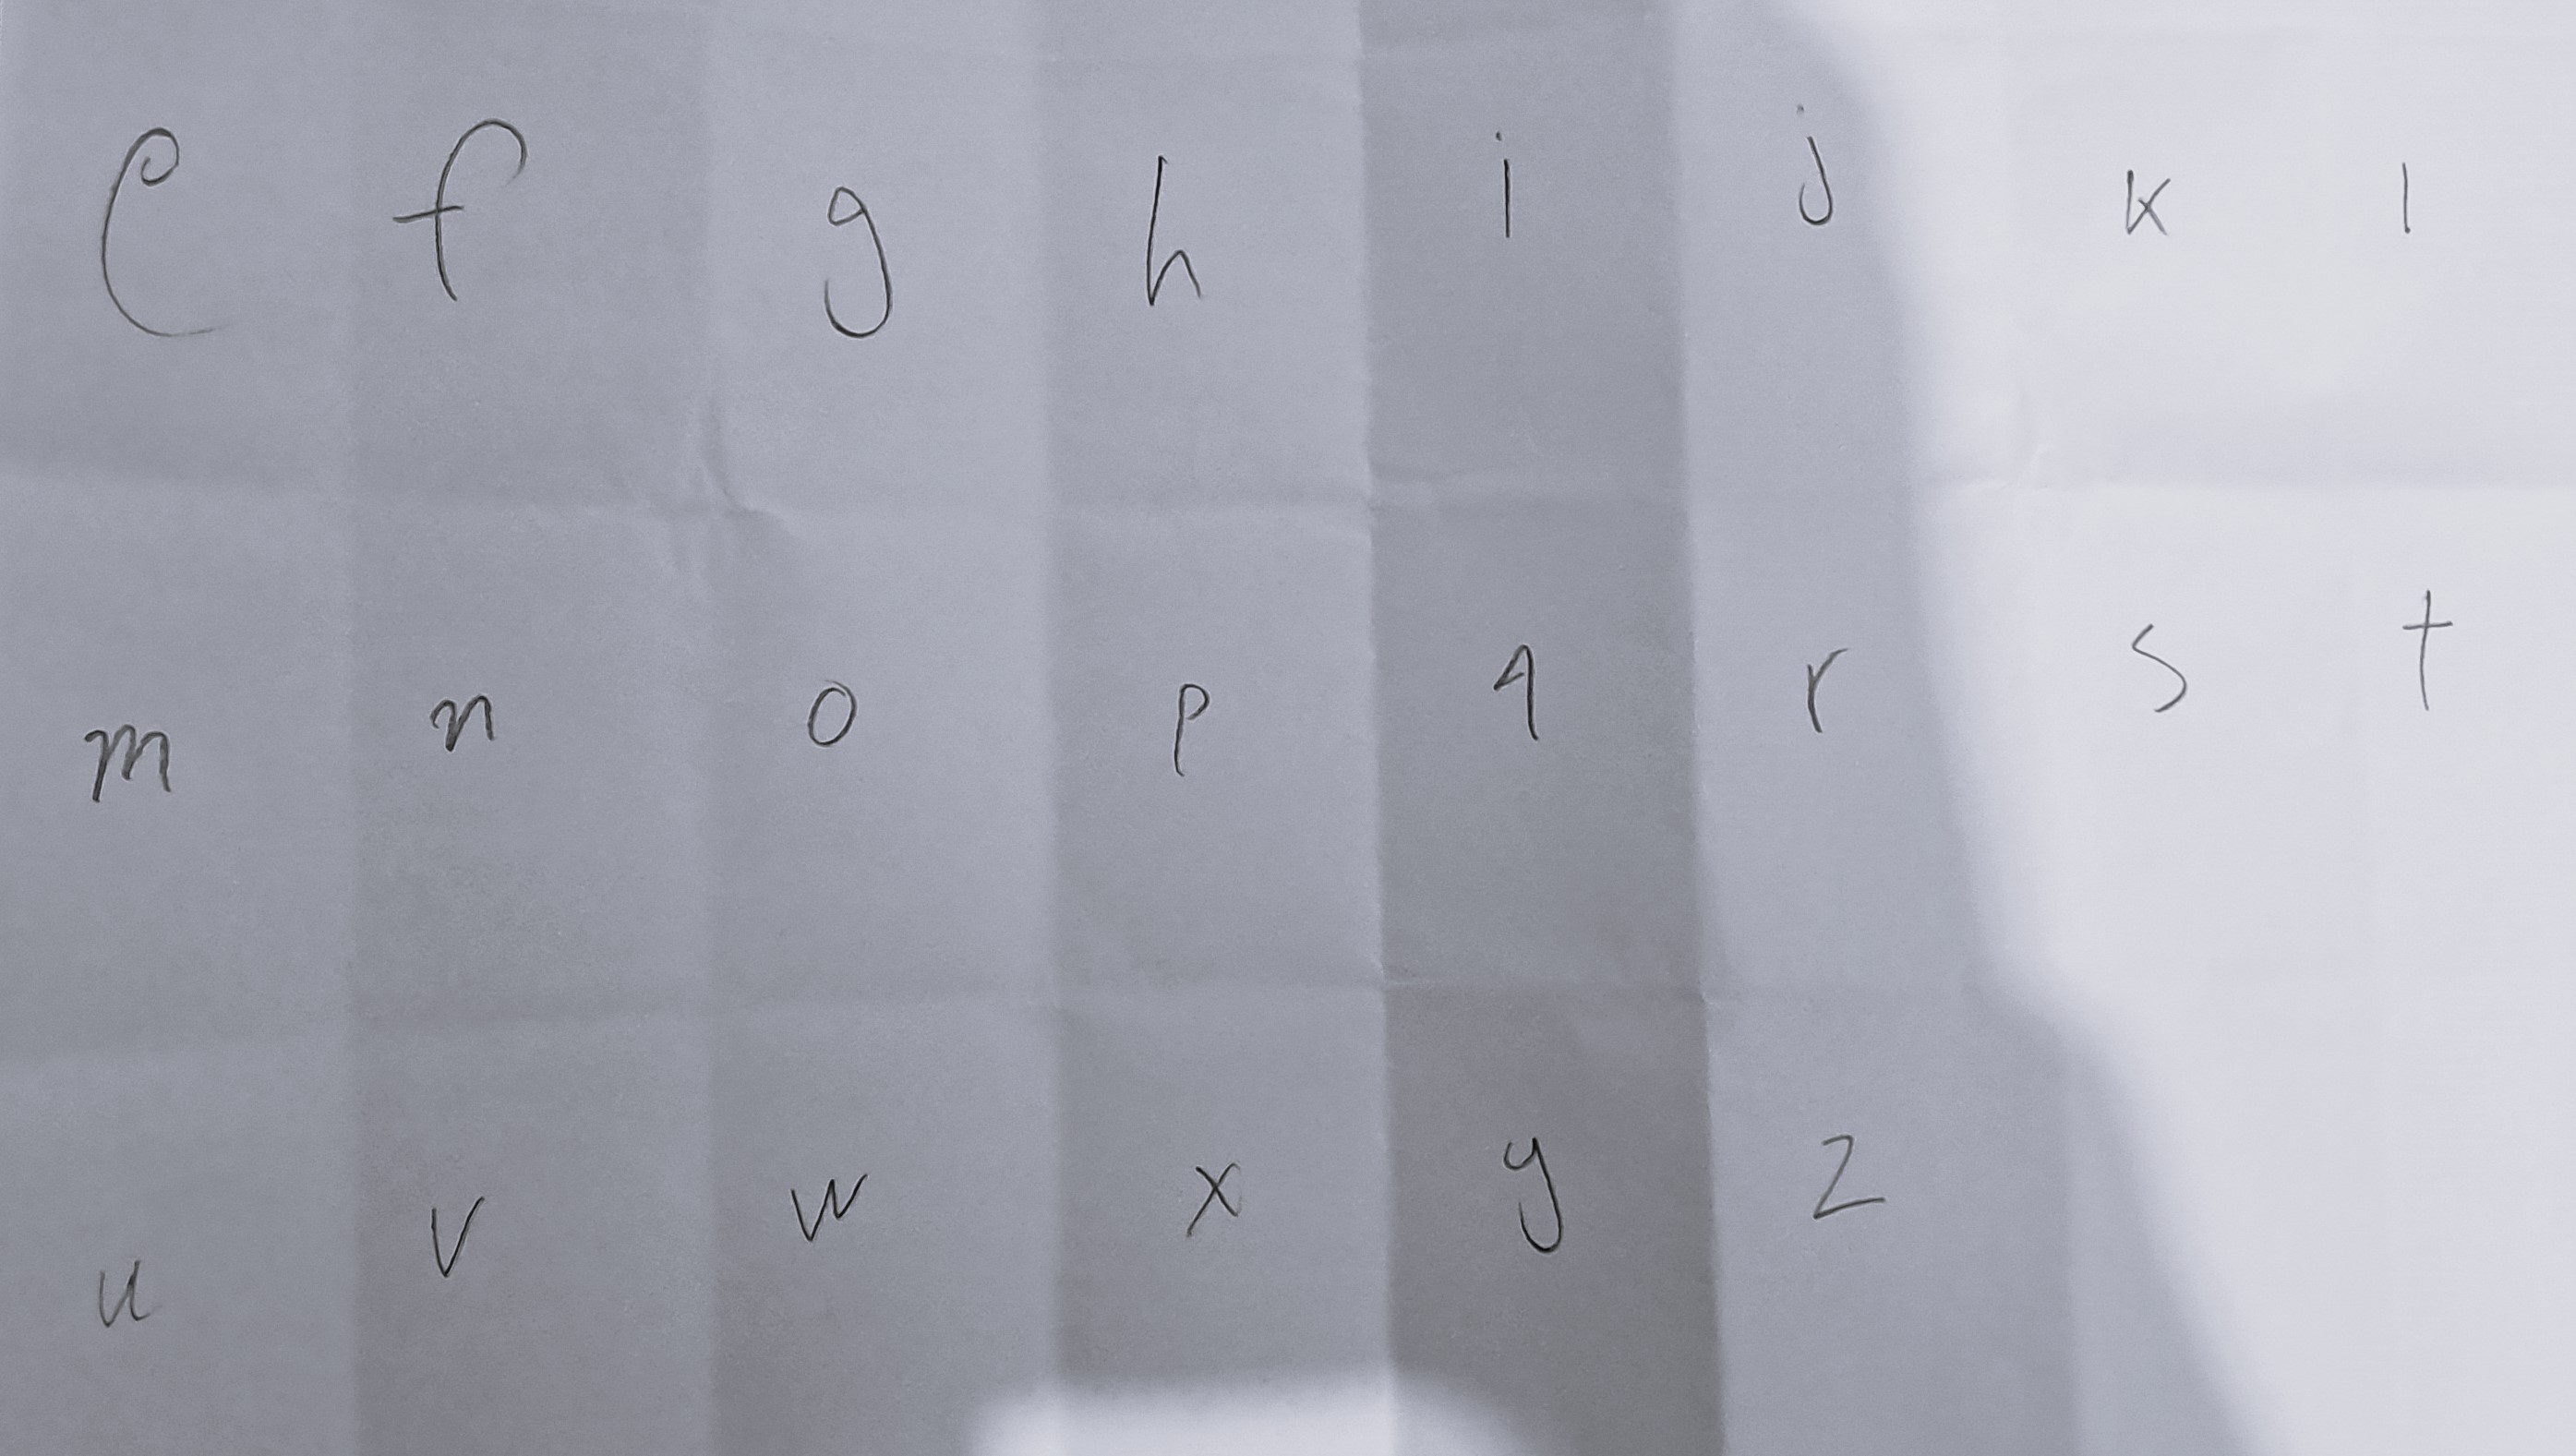 e f g h i j k l
m n o p q r s t
u v w x y z